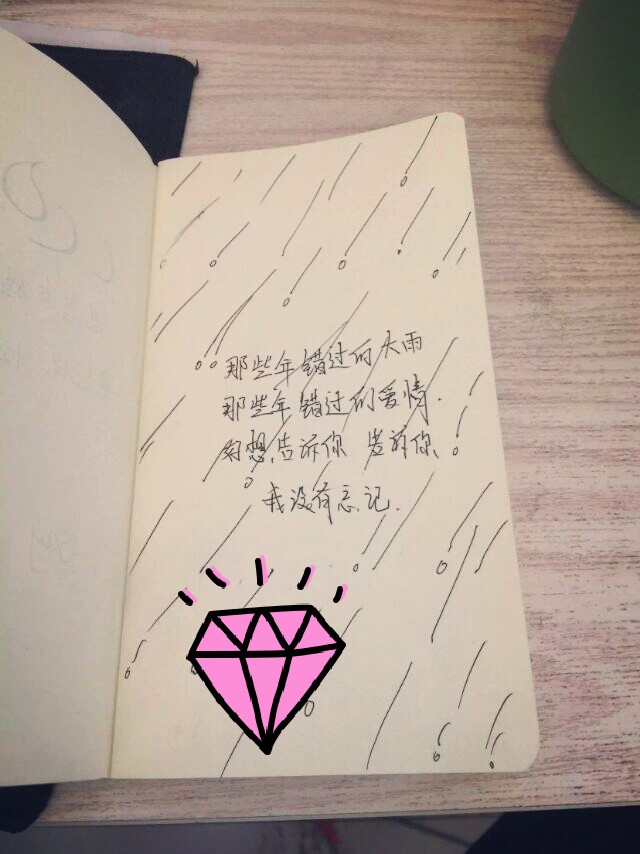 那些年错过的大雨
那些年错过的爱情.
好想告诉你 告诉你
我没有忘记.